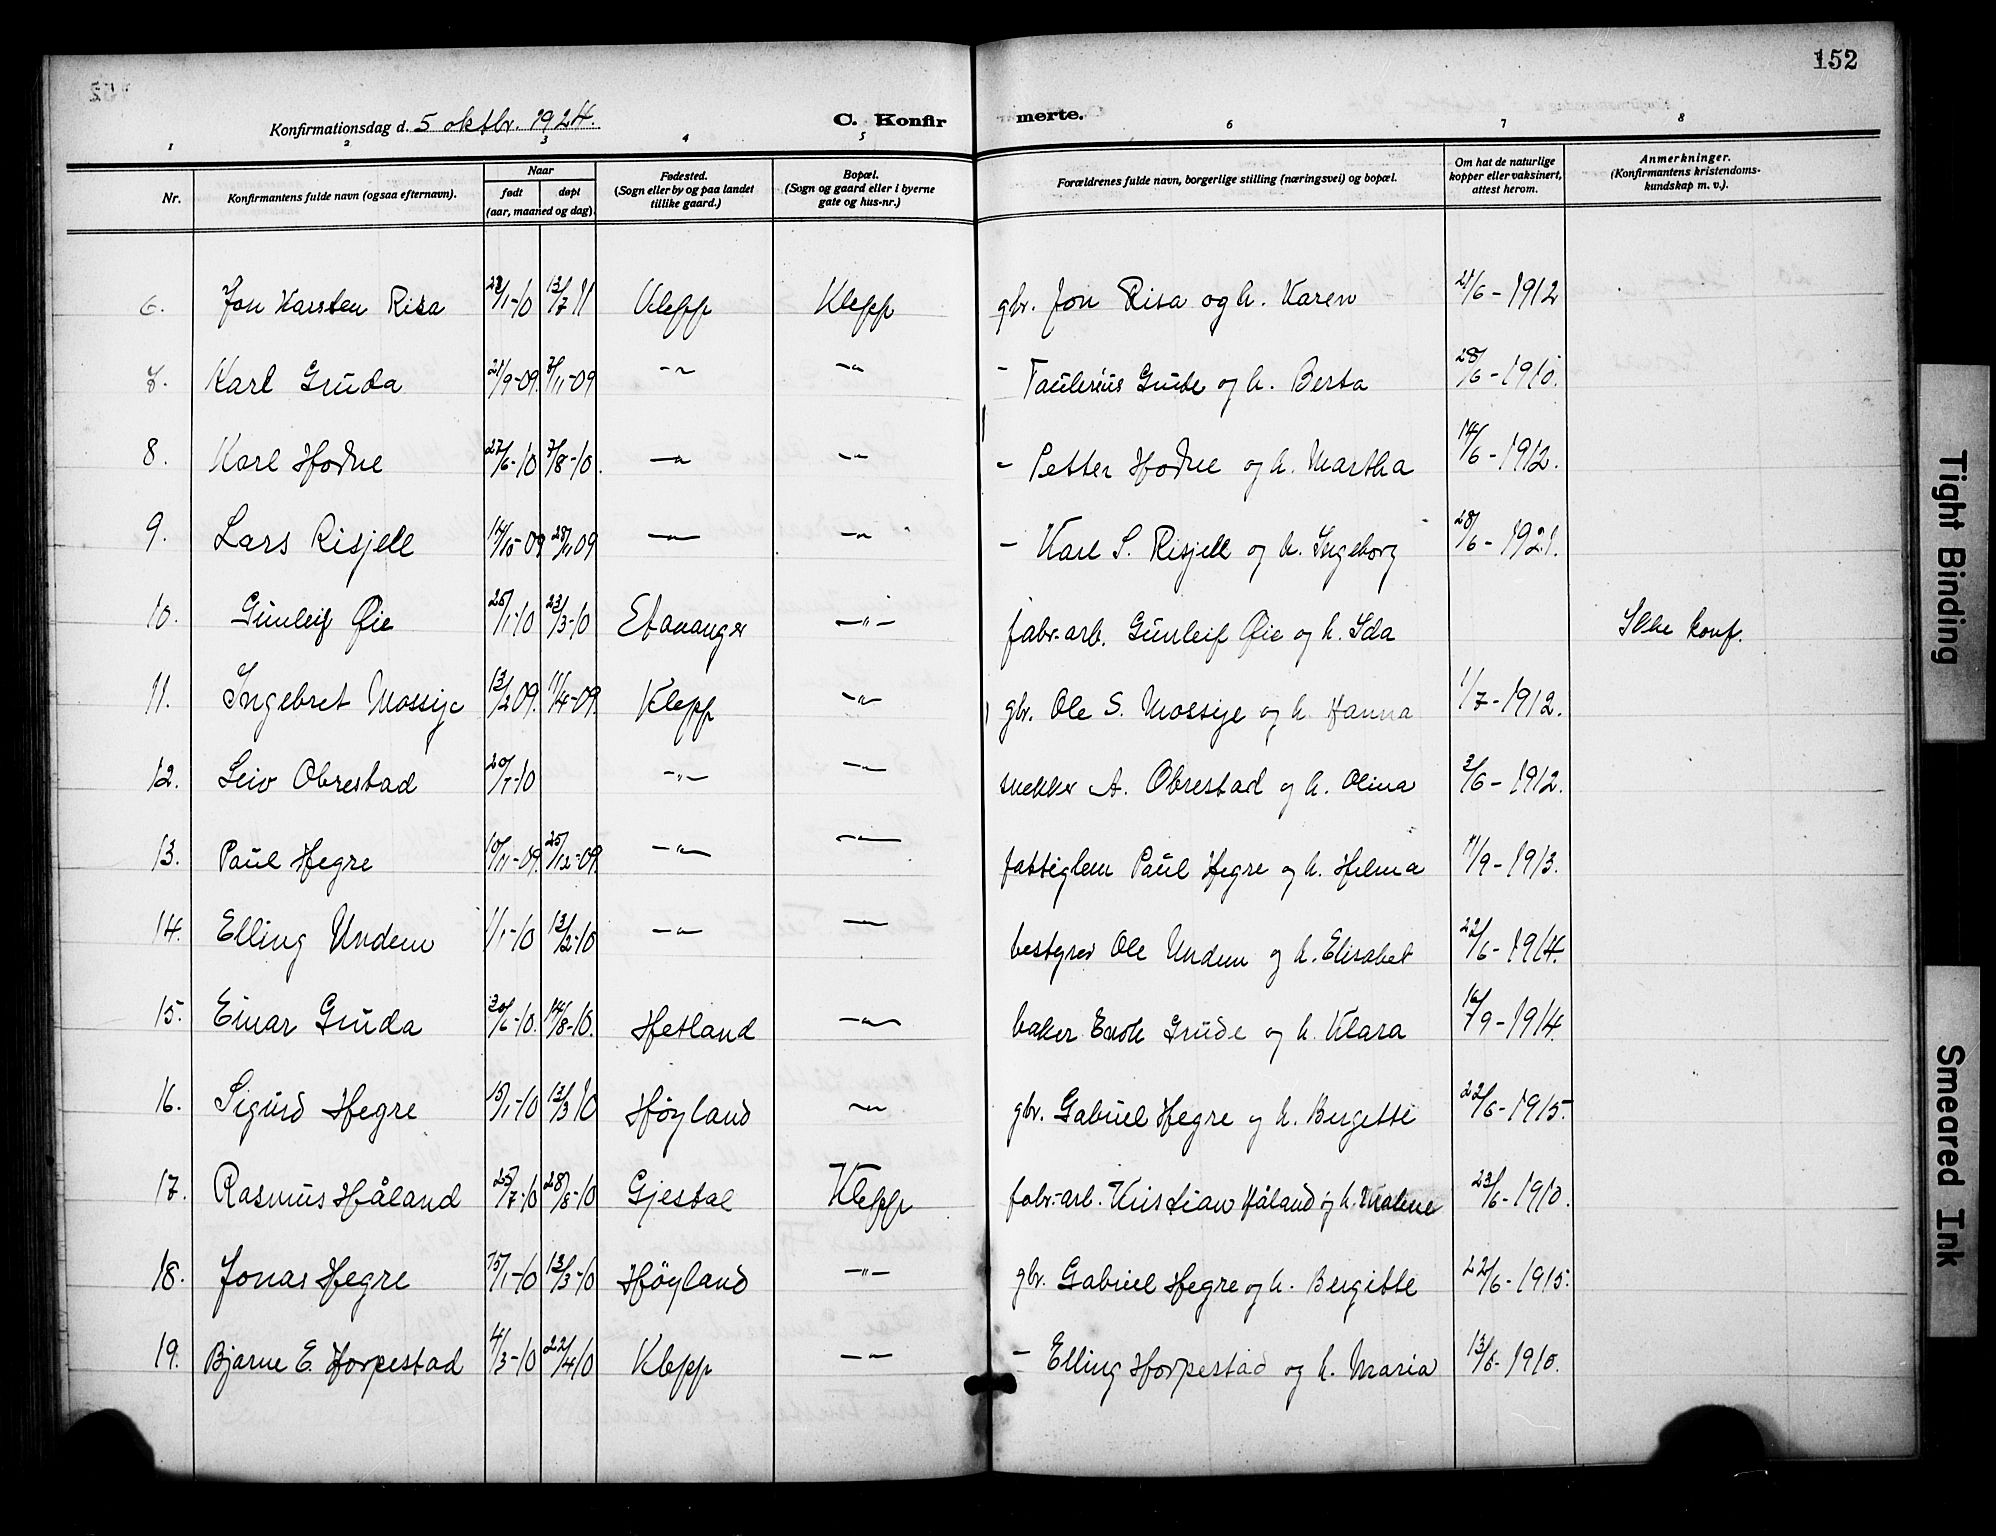 152
Konfirmationsdag d. 5 oktbr. 1924. C. Konfirmerte.
1 2 3 4 5 6 7 8
Nr. Konfirmantens fulde navn (ogsaa efternavn). Naar født døpt (aar, maaned og dag). Fødested. (Sogn eller by og paa landet tillike gaard.) Bopæl. (Sogn og gaard eller i byerne gate og hus-nr.) Forældrenes fulde navn, borgerlige stilling (næringsvei) og bopæl. Om hat de naturlige kopper eller vaksinert, attest herom. Anmerkninger. (Konfirmantens kristendomskundskap m. v.).
6. Jon Karsten Risa 28/1-10 13/7 11 Klepp Klepp gbr. Jon Risa og h. Karen 21/6-1912
7. Karl Gruda 21/9-09. 7/11-09 -"- -"- - Taulerius Grude og h. Berta 28/6-1910.
8. Karl Hodne 27/6-10 7/8-10. -"- -"- - Petter Hodne og h. Martha 14/6-1912.
9. Lars Risjell 14/10-09 28/11 09 -"- -"- - Karl S. Risjell og h. Ingeborg 28/6-1921.
10. Gunleif Øie 25/1-10 23/3-10 Stavanger -"- fabr.-arb. Gunleif Øie og h. Ida Ikke konf.
11. Ingebret Mossige 13/2 09. 11/4-09. Klepp -"- gbr. Ole S. Mossige og h. Hanna 1/7-1912.
12. Leiv Obrestad 20/1-10 -"- -"- snekker A. Obrestad og h. Olina 3/6-1912.
13. Paul Hegre 10/11-09. 25/12-09. -"- -"- fattiglem Paul Hegre og h. Helma 11/9-1913.
14. Elling Undem 1/1-10 13/2-10 -"- -"- bestyrer Ole Undem og h. Elisabet 22/6-1914.
15. Einar Gruda 30/6-10. 14/8-10. Hetland -"- baker Enok Grude og h. Klara 16/9-1914.
16. Sigurd Hegre 15/1-10 13/3 10 Høyland -"- gbr. Gabriel Hegre og h. Bergette 22/6-1915.
17. Rasmus Håland 25/7-10 28/8-10 Gjestal Klepp fabr.-arb. Kristian Håland og h. Malene 23/6-1910.
18. Jonas Hegre 15/1-10 13/3-10 Høyland -"- gbr. Gabriel Hegre og h. Bergitte 22/6-1915.
19. Bjarne E. Horpestad 4/3-10 22/4 10 Klepp -"- - Elling Horpestad og h. Maria 13/6-1910.
Tight Binding
Smeared Ink